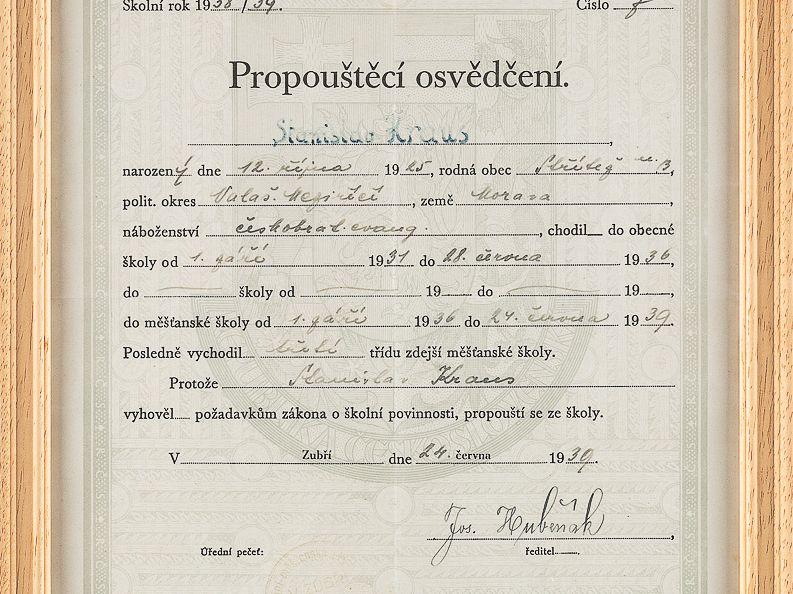 Školní rok 1938/39. Číslo
Propouštěcí osvědčení.
Stanislav Kraus,
narozený dne 12. října 1925, rodná obec Střítež n. B,
polit. okres Valaš. Meziříčí, země Morava,
náboženství českobrat. evang., chodil do obecné
školy od 1. září 1931 do 28. června 1936,
do školy od 19 do 19,
do měšťanské školy od 1. září 1936 do 24. června 1939.
Posledně vychodil třetí třídu zdejší měšťanské školy.
Protože Stanislav Kraus
vyhověl požadavkům zákona o školní povinnosti, propouští se ze školy.
V Zubří dne 24. června 1939.
Jos. Hubeňák,
Úřední pečeť: ředitel